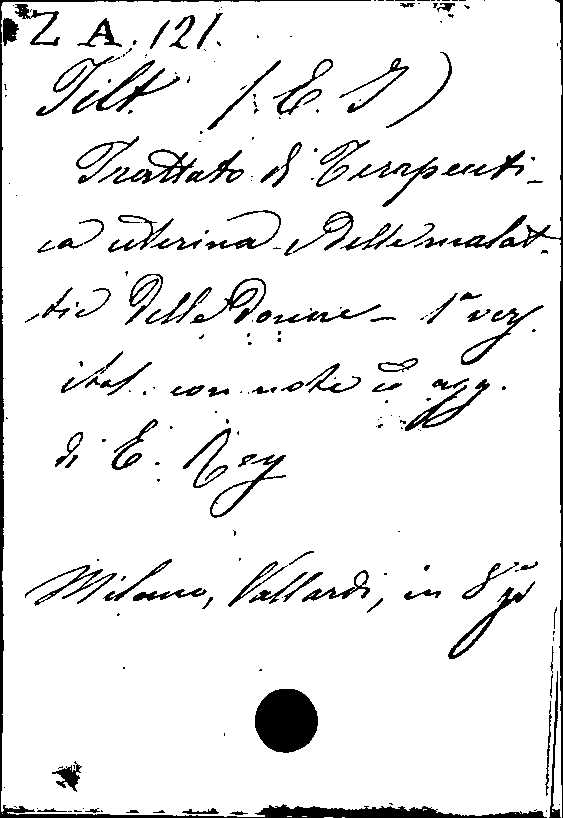 Z A. 121.
Tilt. (E. J)
Trattato di Terapeuti-
ca uterina e delle malat-
tie delle donne - 1ª vers.
ital. con note ed agg.
di E. Rey
Milano, Vallardi, in 8º